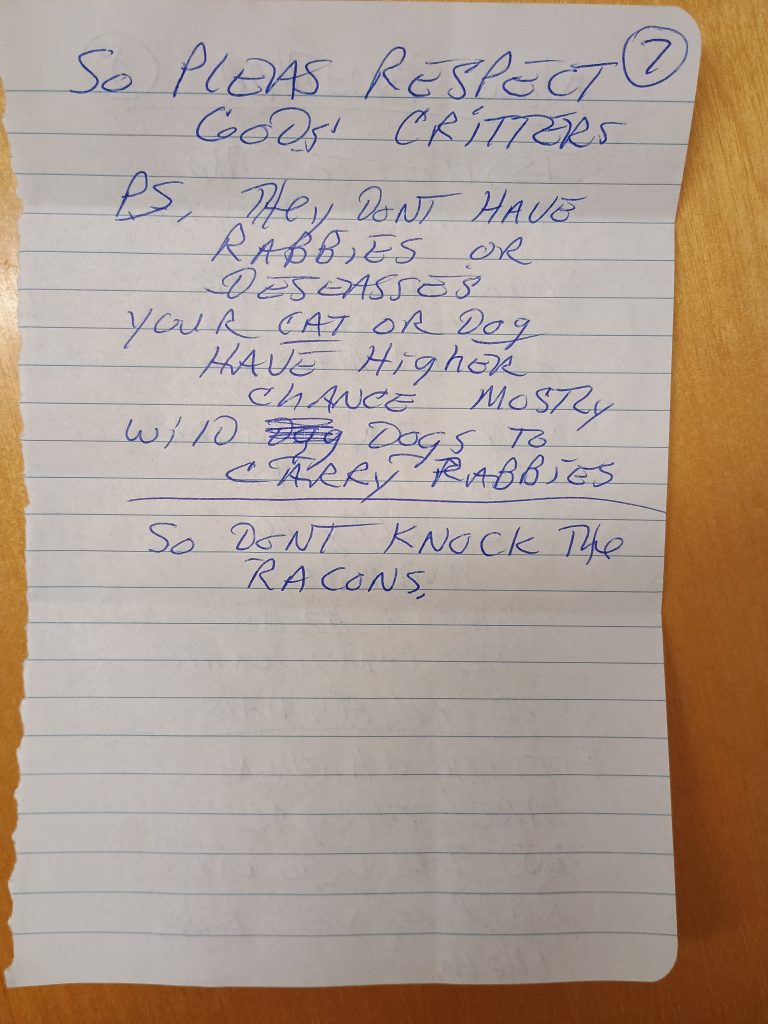 So PLEAS RESPECT 2
GODS' CRITTERS
PS, They DONT HAVE
RABBIES OR
DESEASSES
YOUR CAT OR Dog
HAVE HigHER
CHANCE MOSTly
WilD DOGS TO
CARRY RABBIES
So DONT KNOCK The
RACONS.